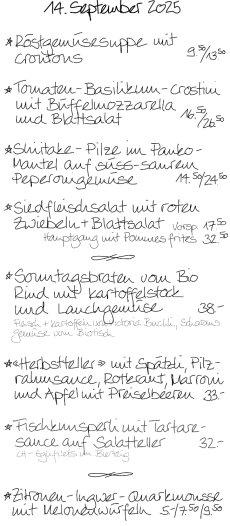 14. September 2025
* Röstgemüsesuppe mit
croutons 9.50/13.50
* Tomaten-Basilikum-Crostini
mit Büffelmozzarella
und Blattsalat 16.50/26.50
* Shiitake-Pilze im Panko-
Mantel auf süss-saurem
Peperonigemüse 14.50/24.50
* Siedfleischsalat mit roten
Zwiebeln + Blattsalat Vorsp. 17.50
Hauptgang mit Pommes frites 32.50
* Sonntagsbraten vom Bio
Rind mit Kartoffelstock
und Lauchgemüse 38.-
Fleisch + Kartoffeln von
Gemüse vom Biotisch
* «Herbstteller» mit Spätzli, Pilz-
rahmsauce, Rotkraut, Marroni
und Apfel mit Preiselbeeren 33.-
* Fischknusperli mit Tartare-
sauce auf Salatteller 32.-
CH-
* Zitronen-Ingwer-Quarkmousse
mit Melonenwürfeln 5.-/7.50/9.50